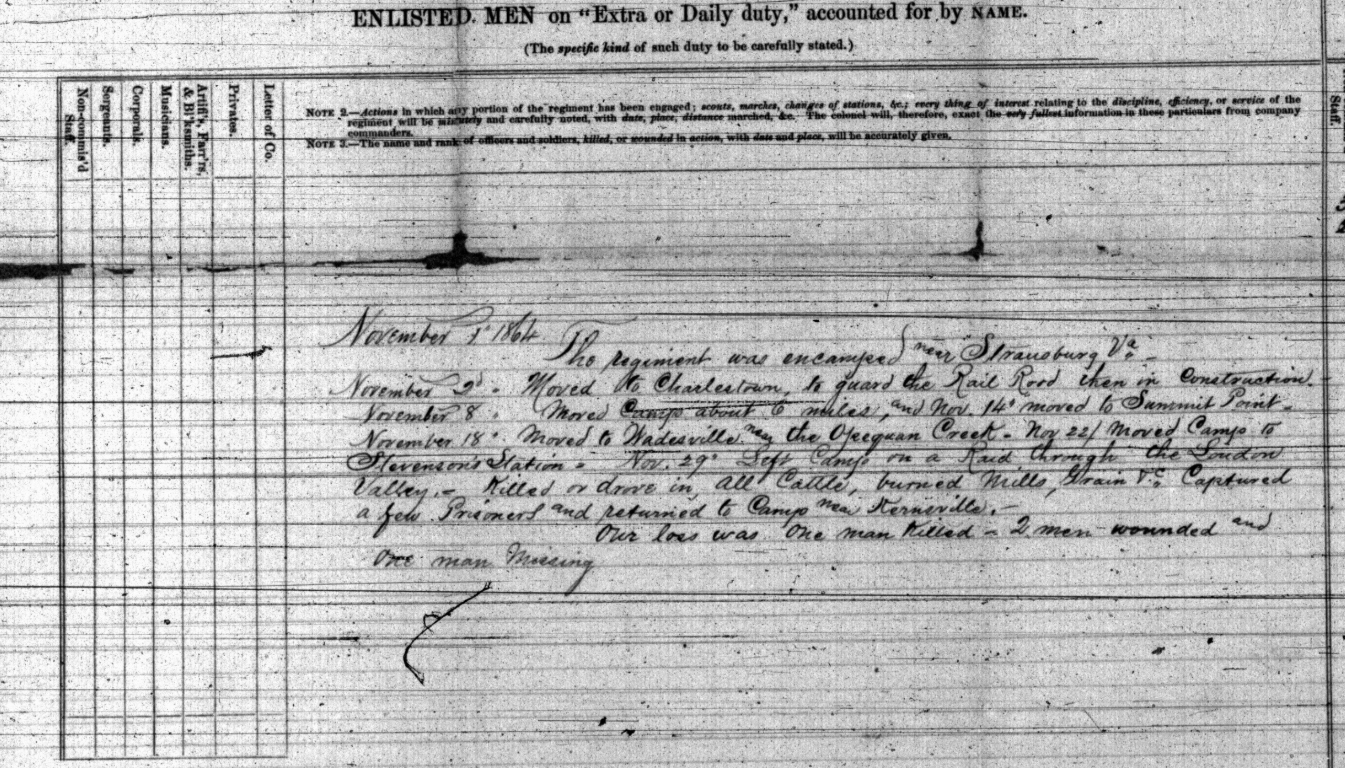 ENLISTED MEN on "Extra or Daily duty," accounted for by NAME.
(The specific kind of such duty to be carefully stated.)
Non-commis'd Staff.
Sergeants.
Corporals.
Musicians.
Artif's, Farr'rs, & Bl'ksmiths.
Privates.
Letter of Co.
NOTE 2.—Actions in which any portion of the regiment has been engaged; scouts, marches, changes of stations, &c.; every thing of interest relating to the discipline, efficiency, or service of the
regiment will be minutely and carefully noted, with date, place, distance marched, &c. The colonel will, therefore, exact the very fullest information in these particulars from company
commanders.
NOTE 3.—The name and rank of officers and soldiers, killed, or wounded in action, with date and place, will be accurately given.
Staff.
November 1st 1864
The regiment was encamped near Strausburg Va. –
November 2d. Moved to Charlestown, to guard the Rail Rood then in Construction.
November 8. Moved Camp about 6 miles, and Nov. 14" moved to Summit Point –
November 18". Moved to Wadesville near the Opequan Creek – Nov 22/ Moved Camp to
Stevenson's Station – Nov. 29" Left Camp on a Raid through the Loudon
Valley. – Killed or drove in, all Cattle, burned Mills, Grain &c. Captured
a few Prisoners and returned to Camp near Kernsville. –
Our loss was One man Killed – 2 men wounded and
One man Missing